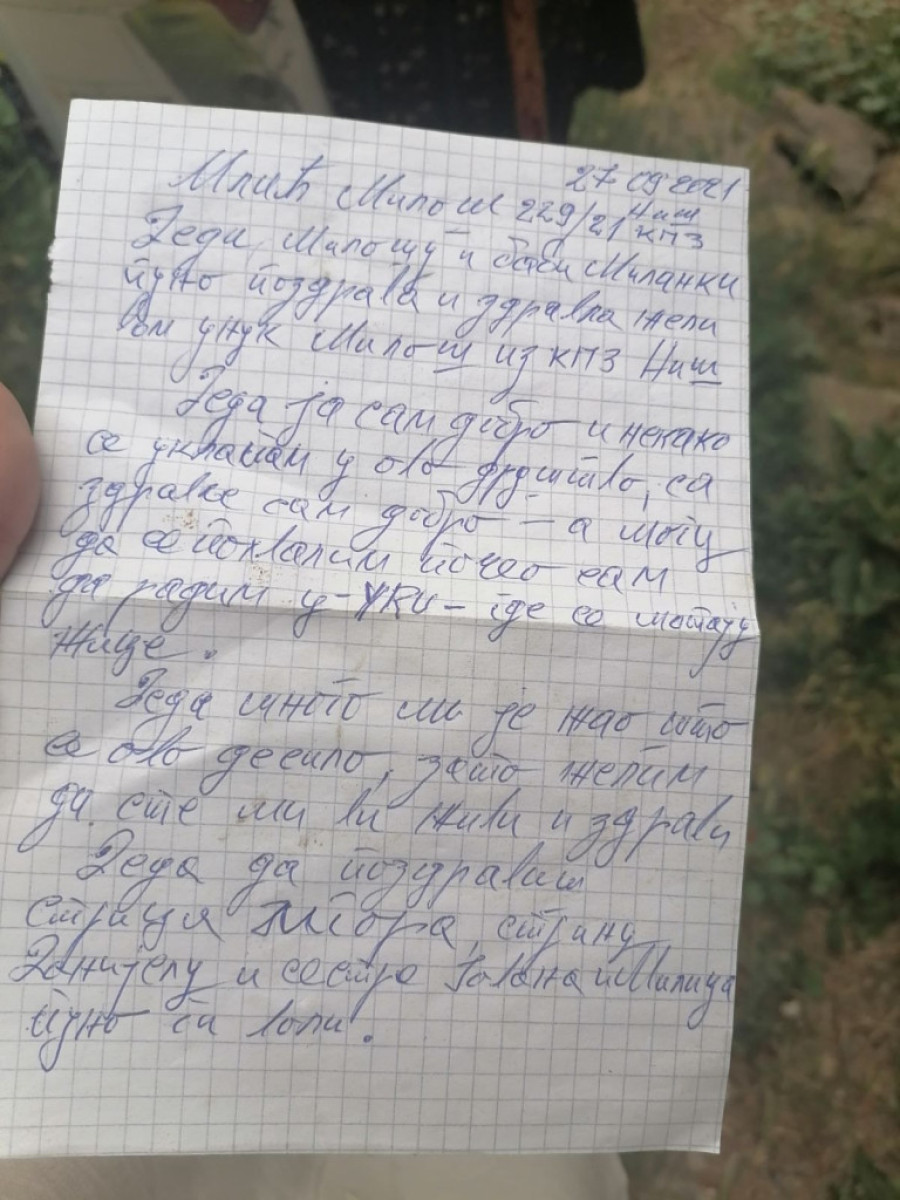 27 09 2021
Млић Милош 229/21 Ниш КПЗ
Деди, Милошу и баби Миланки
пуно поздрава и здравља жели
вам унук Милош из КПЗ Ниш
Деда ја сам добро и некако
се уклапам у ово друштво, са
здравље сам добро – а могу
да се похвалим почео сам
да радим у – – где се мотају
жице.
Деда много ми је жао што
се ово десило, зато желим
да сте ми ви живи и здрави
Деда да поздравиш
стрица, стрину
Данијелу и сестре Јована и Милица
пуно ги воли.